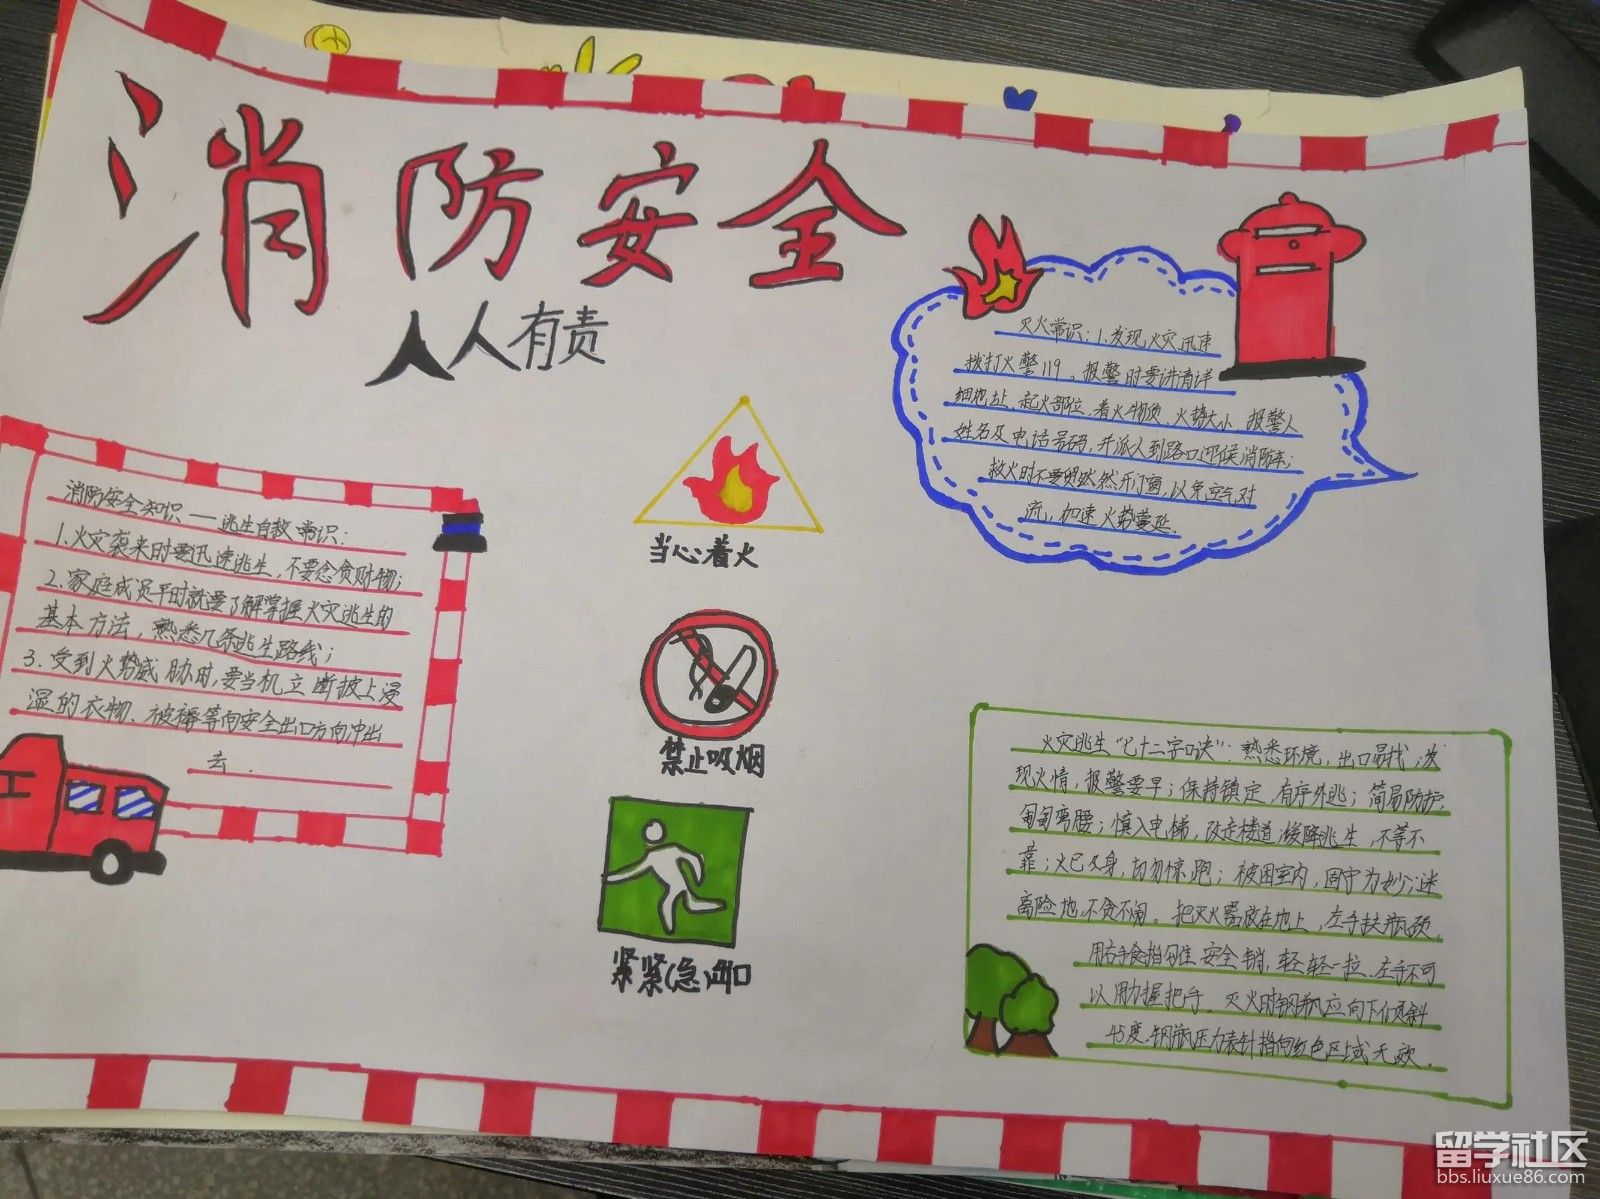 消防安全
人人有责
灭火常识:1.发现火灾迅速
拨打火警119。报警时要讲清详
细地址、起火部位、着火物质、火势大小、报警人
姓名及电话号码,并派人到路口迎候消防车;
救火时不要贸然然开门窗,以免空气对
流,加速火势蔓延.
消防安全知识——逃生自救常识:
1.火灾袭来时要迅速逃生,不要念贪财物;
2.家庭成员平时就要了解掌握火灾逃生的
基本方法,熟悉几条逃生路线;
3.受到火势威胁时,要当机立断披上浸
湿的衣物、被褥等向安全出口方向冲出
去.
当心着火
禁止吸烟
紧紧(急)出口
火灾逃生“七十二字口诀”:熟悉环境,出口易找;发
现火情,报警要早;保持镇定,有序外逃;简易防护,
匍匐弯腰;慎入电梯,改走楼道;缓降逃生,不等不
靠;火已及身,切勿惊跑;被困室内,固守为妙;谜
离险地,不贪不闹。把灭火器放在地上,左手扶瓶颈,
用右手食指勾住安全销,轻轻一拉.左手不可
以用力握把手。灭火时钢瓶应向下倾斜
45度.钢瓶压力表针指向红色区域无效.
留学社区
bbs.liuxue86.com